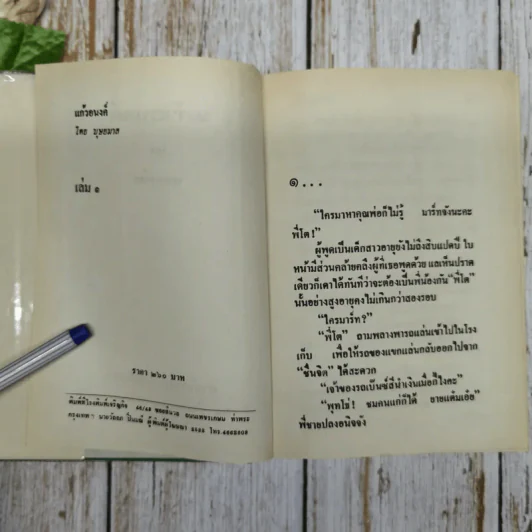 แก้วอนงค์
โดย บุษยมาส
เล่ม ๑
ราคา ๒๖๐ บาท
พิมพ์ที่โรงพิมพ์เจริญกิจ
กรุงเทพฯ
๑...
“ใครมาหาคุณพ่อก็ไม่รู้ มาร์ทจังนะคะ
พี่โต!”
ผู้พูดเป็นเด็กสาวอายุยังไม่ถึงสิบแปดปี ใบ
หน้ามีส่วนคล้ายคลึงผู้ที่เธอพูดด้วย แลเห็นปราด
เดียวก็เดาได้ทันทีว่าจะต้องเป็นพี่น้องกัน “พี่โต”
นั้นอย่างสูงอายุคงไม่เกินกว่าสองรอบ
“ใครมาร์ท?”
“พี่โต” ถามพลางพารถแล่นเข้าไปในโรง
เก็บ เพื่อให้รถของแขกแล่นกลับออกไปจาก
“ชื่นจิต” ได้สะดวก
“เจ้าของรถเบ็นซ์สีน้ำเงินเมื่อกี้ไงคะ”
“พุทโธ่! ชมคนแก่ก็ได้ ยายแต้มเอ๋ย”
พี่ชายปลงอนิจจัง